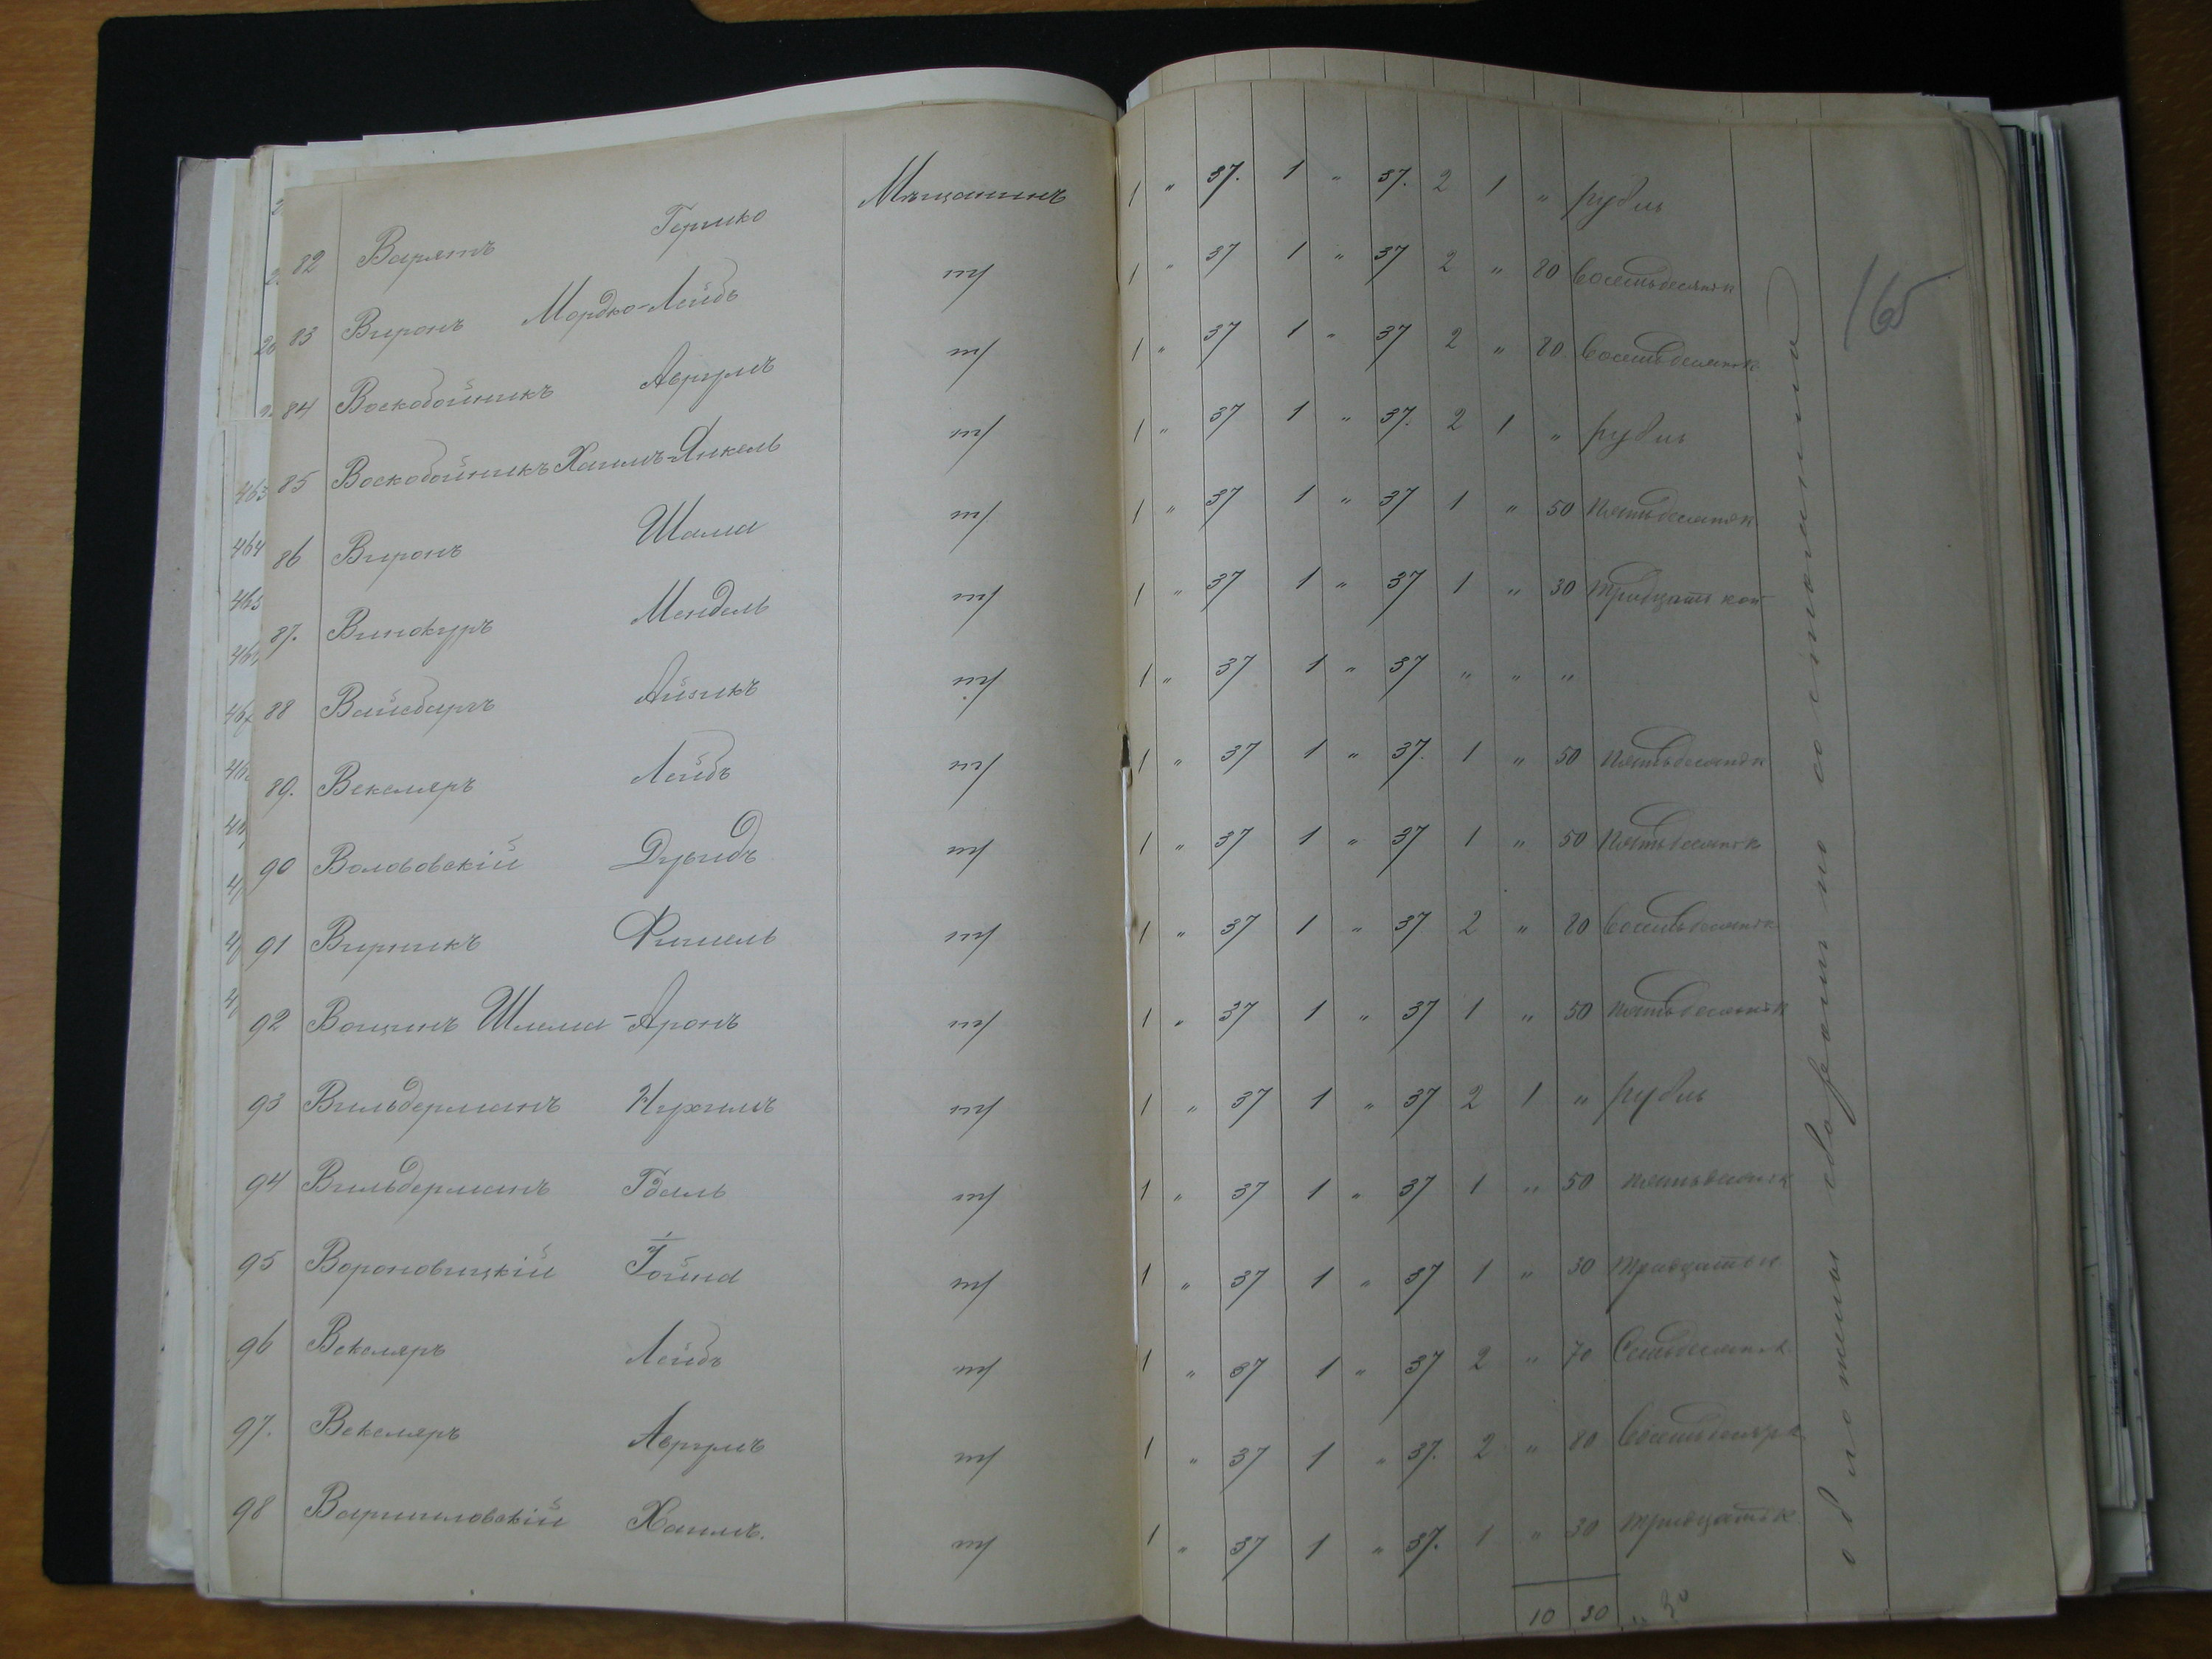 82 Варятъ Гершко Мѣщанинъ 1 „ 37. 1 „ 37. 2 1 „ рубль
83 Виронъ Мордко-Лейбъ т/ 1 „ 37 1 „ 37 2 „ 80 восемьдесят к
84 Воскобойникъ Аврумъ т/ 1 „ 37 1 „ 37 2 „ 80 восемьдесят к.
85 Воскобойникъ Хаимъ-Янкель т/ 1 „ 37 1 „ 37. 2 1 „ рубль
86 Виронъ Шама т/ 1 „ 37 1 „ 37 1 „ 50 пятьдесят к
87. Винокуръ Мендель т/ 1 „ 37 1 „ 37 1 „ 30 тридцать коп
88 Вайсбаргъ Айзикъ т/ 1 „ 37 1 „ 37 „ „ „
89. Векслеръ Лейбъ т/ 1 „ 37 1 „ 37. 1 „ 50 пятьдесят к
90 Волововскій Дувидъ т/ 1 „ 37 1 „ 37 1 „ 50 пятьдесят к
91 Вирникъ Фишель т/ 1 „ 37 1 „ 37 2 „ 80 восемьдесят к
92 Вощинъ Шлема-Аронъ т/ 1 „ 37 1 „ 37 1 „ 50 пятьдесят к
93 Вильдерманъ Нухимъ т/ 1 „ 37 1 „ 37 2 1 „ рубль
94 Вильдерманъ Гдаль т/ 1 „ 37 1 „ 37 1 „ 50 пятьдесят к
95 Вороновицкій Іойна т/ 1 „ 37 1 „ 37 1 „ 30 тридцать к
96 Векслеръ Лейбъ т/ 1 „ 37 1 „ 37 2 „ 70 семьдесят к.
97. Векслеръ Аврумъ т/ 1 „ 37 1 „ 37. 2 „ 80 восемьдесят к
98 Вармиловскій Хаимъ. т/ 1 „ 37 1 „ 37. 1 „ 30 тридцать к.
10 30 „ 30
165
463
464
465